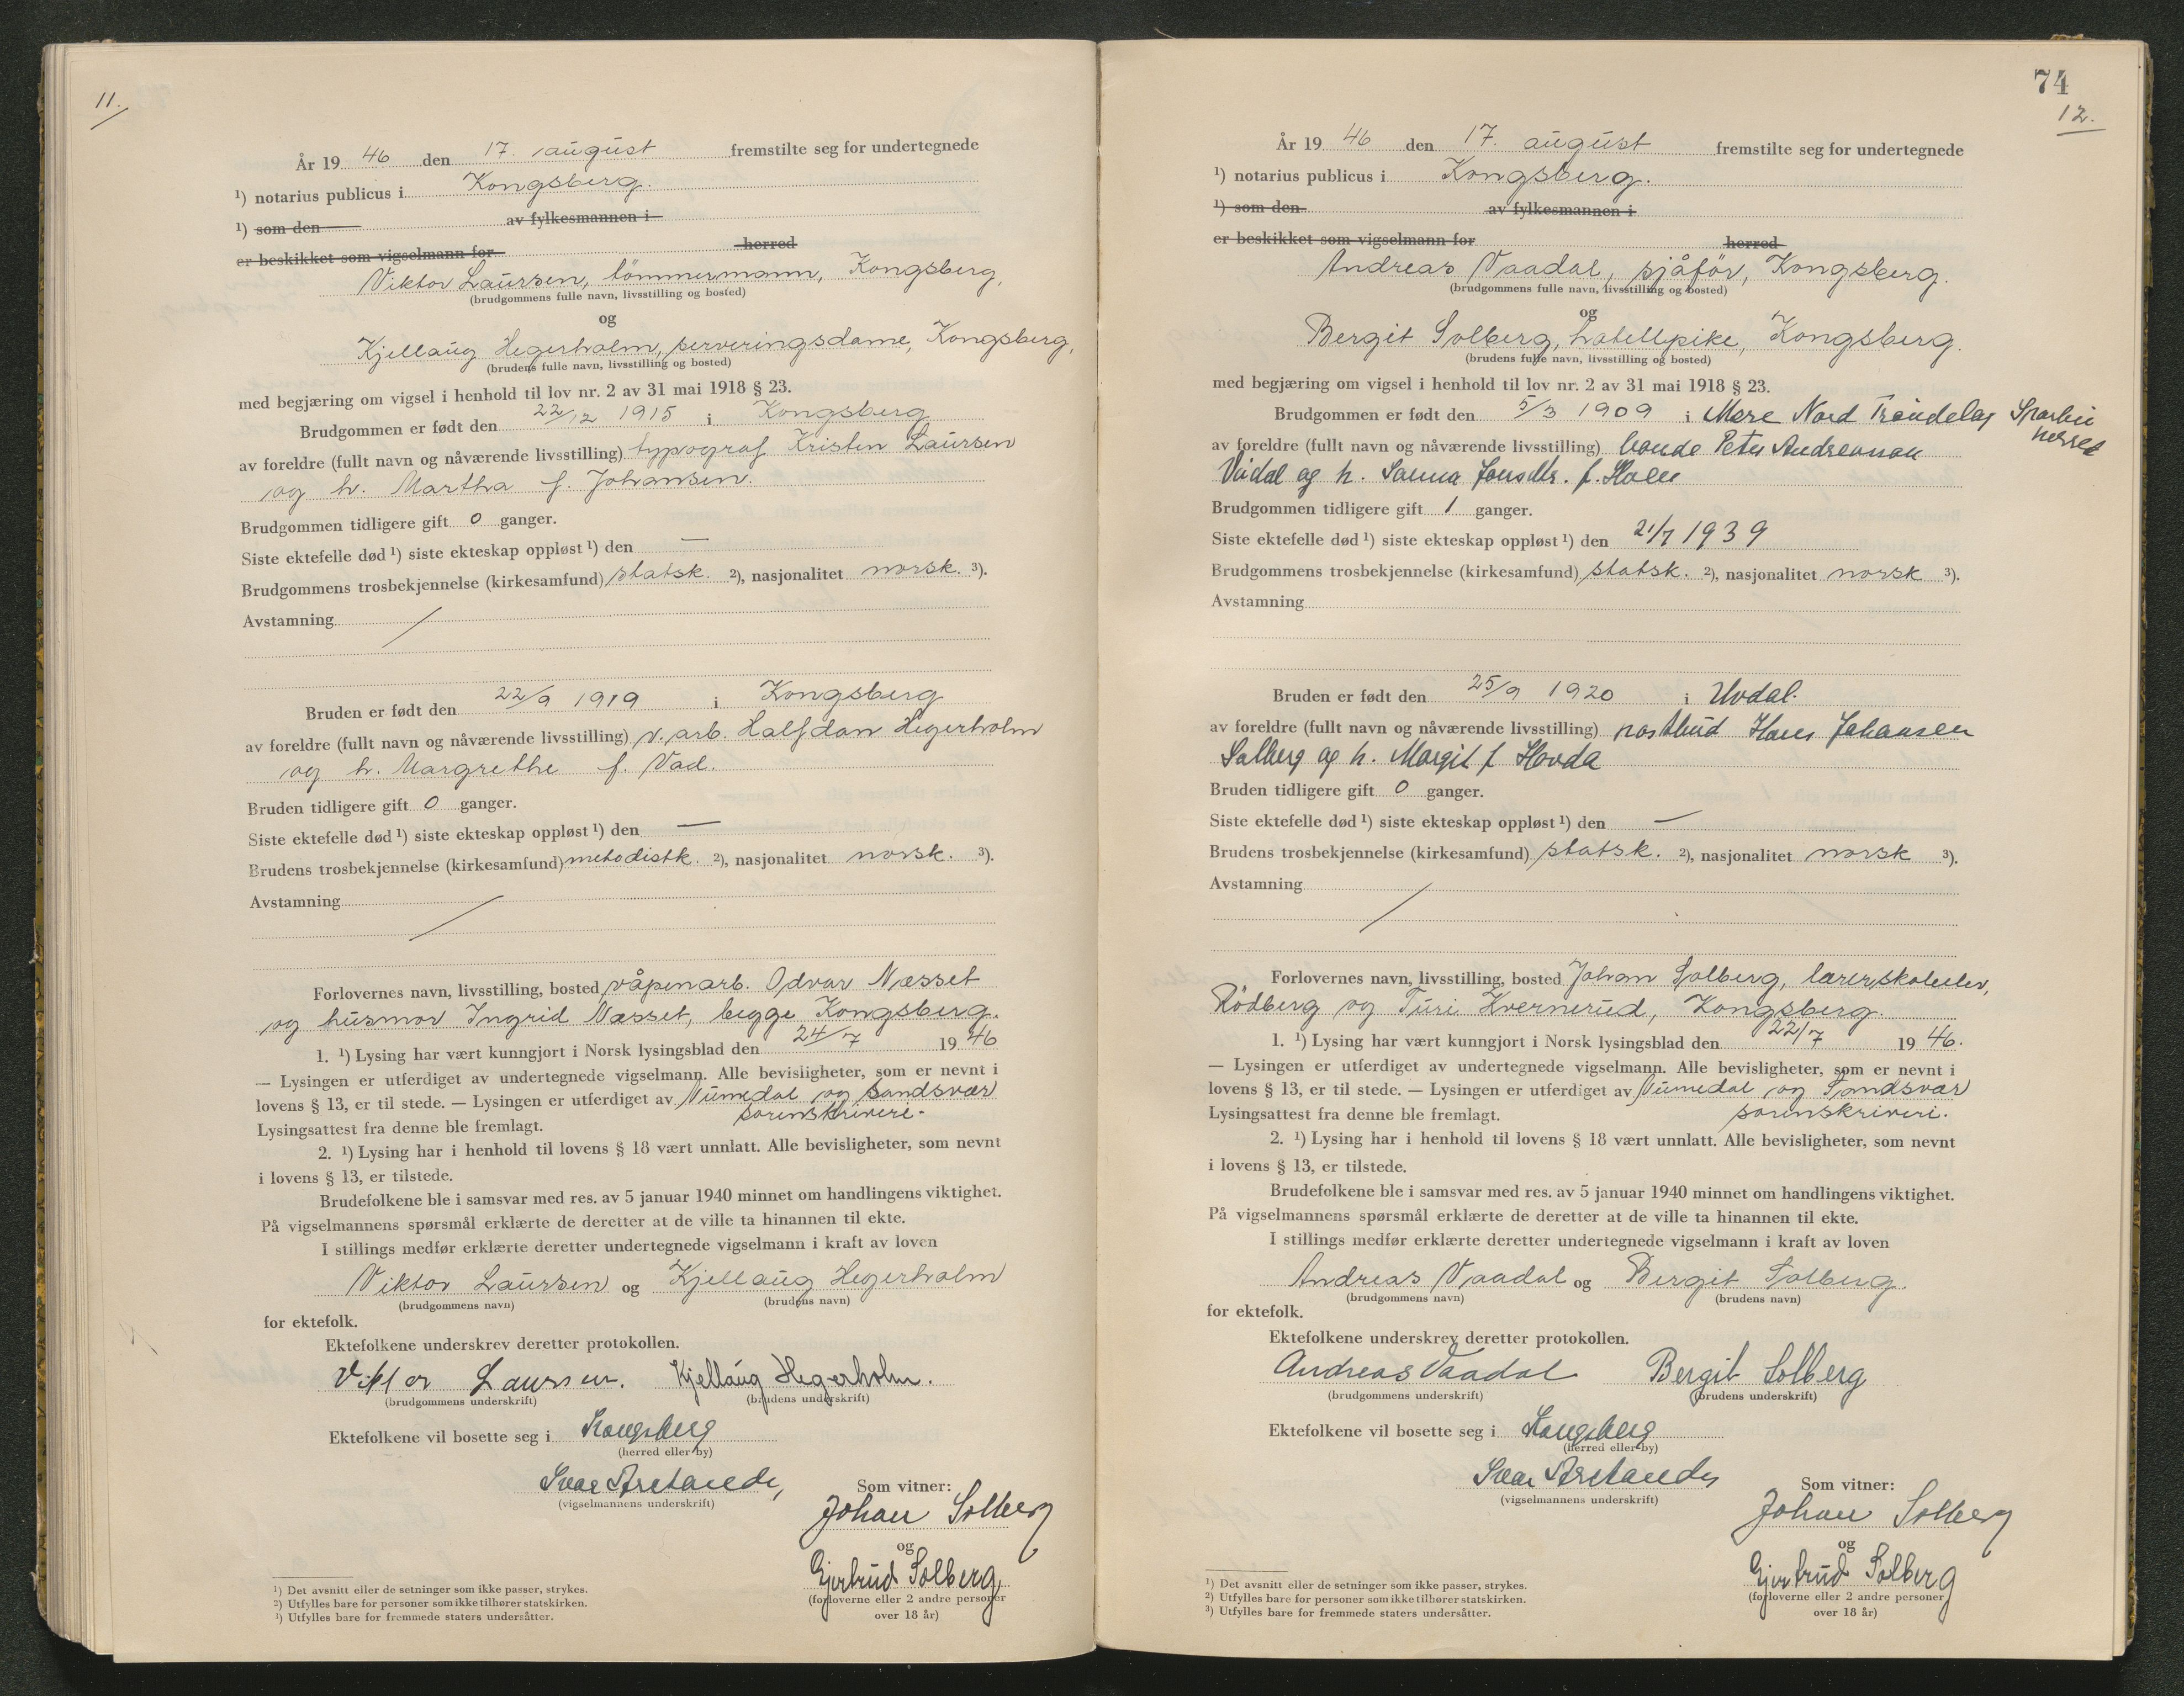 11.
År 19 46 den 17. august fremstilte seg for undertegnede
¹) notarius publicus i Kongsberg.
¹) som den av fylkesmannen i
er beskikket som vigselmann for herred
Viktor Laursen, tömmermann, Kongsberg,
(brudgommens fulle navn, livsstilling og bosted)
og
Kjellaug Hegerholm, serveringsdame, Kongsberg,
(brudens fulle navn, livsstilling og bosted)
med begjæring om vigsel i henhold til lov nr. 2 av 31 mai 1918 § 23.
Brudgommen er født den 22/12 1915 i Kongsberg
av foreldre (fullt navn og nåværende livsstilling) typograf Kristen Laursen
og h. Martha f. Johansen.
Brudgommen tidligere gift 0 ganger.
Siste ektefelle død ¹) siste ekteskap oppløst ¹) den —
Brudgommens trosbekjennelse (kirkesamfund) statsk. ²), nasjonalitet norsk. ³).
Avstamning /
Bruden er født den 22/9 1919 i Kongsberg
av foreldre (fullt navn og nåværende livsstilling) v. arb. Halfdan Hegerholm
og h. Margrethe f. Vad.
Bruden tidligere gift 0 ganger.
Siste ektefelle død ¹) siste ekteskap oppløst ¹) den —
Brudens trosbekjennelse (kirkesamfund) metodistk. ²), nasjonalitet norsk. ³).
Avstamning /
Forlovernes navn, livsstilling, bosted våpenarb. Odvar Næsset
og husmor Ingrid Næsset, begge Kongsberg.
1. ¹) Lysing har vært kunngjort i Norsk lysingsblad den 24/7 19 46
— Lysingen er utferdiget av undertegnede vigselmann. Alle bevisligheter, som er nevnt i
lovens § 13, er til stede. — Lysingen er utferdiget av Numedal og Sandsvær
sorenskriveri.
Lysingsattest fra denne ble fremlagt.
2. ¹) Lysing har i henhold til lovens § 18 vært unnlatt. Alle bevisligheter, som nevnt
i lovens § 13, er tilstede.
Brudefolkene ble i samsvar med res. av 5 januar 1940 minnet om handlingens viktighet.
På vigselmannens spørsmål erklærte de deretter at de ville ta hinannen til ekte.
I stillings medfør erklærte deretter undertegnede vigselmann i kraft av loven
Viktor Laursen og Kjellaug Hegerholm
(brudgommens navn) (brudens navn)
for ektefolk.
Ektefolkene underskrev deretter protokollen.
Viktor Laursen. Kjellaug Hegerholm.
(brudgommens underskrift) (brudens underskrift)
Ektefolkene vil bosette seg i Kongsberg
(herred eller by)
(vigselmannens underskrift) Som vitner:
Johan Solberg
og
Gjertrud Solberg
(forloverne eller 2 andre personer
over 18 år)
¹) Det avsnitt eller de setninger som ikke passer, strykes.
²) Utfylles bare for personer som ikke tilhører statskirken.
¹) Utfylles bare for fremmede staters undersåtter.
74
12.
År 19 46 den 17. august fremstilte seg for undertegnede
¹) notarius publicus i Kongsberg.
¹) som den av fylkesmannen i
er beskikket som vigselmann for herred
Andreas Vaadal, sjåför, Kongsberg.
(brudgommens fulle navn, livsstilling og bosted)
og
Bergit Solberg, hotellpike, Kongsberg.
(brudens fulle navn, livsstilling og bosted)
med begjæring om vigsel i henhold til lov nr. 2 av 31 mai 1918 § 23.
Brudgommen er født den 5/3 1909 i Mære Nord Trøndelag Sparbu
herred
av foreldre (fullt navn og nåværende livsstilling) bonde Peter Andreassen
Vådal og h. Sanna Jonsdtr. f. Holen
Brudgommen tidligere gift 1 ganger.
Siste ektefelle død ¹) siste ekteskap oppløst ¹) den 21/7 1939
Brudgommens trosbekjennelse (kirkesamfund) statsk. ²), nasjonalitet norsk ³).
Avstamning
Bruden er født den 25/9 1920 i Uvdal.
av foreldre (fullt navn og nåværende livsstilling) postbud Hans Johansen
Solberg og h. Margit f Hovda
Bruden tidligere gift 0 ganger.
Siste ektefelle død ¹) siste ekteskap oppløst ¹) den —
Brudens trosbekjennelse (kirkesamfund) statsk. ²), nasjonalitet norsk ³).
Avstamning /
Forlovernes navn, livsstilling, bosted Johan Solberg, lærerskoleelev,
Rödberg og Turi Kvernerud, Kongsberg.
1. ¹) Lysing har vært kunngjort i Norsk lysingsblad den 22/7 19 46.
— Lysingen er utferdiget av undertegnede vigselmann. Alle bevisligheter, som er nevnt i
lovens § 13, er til stede. — Lysingen er utferdiget av Numedal og Sandsvær
Lysingsattest fra denne ble fremlagt. sorenskriveri.
2. ¹) Lysing har i henhold til lovens § 18 vært unnlatt. Alle bevisligheter, som nevnt
i lovens § 13, er tilstede.
Brudefolkene ble i samsvar med res. av 5 januar 1940 minnet om handlingens viktighet.
På vigselmannens spørsmål erklærte de deretter at de ville ta hinannen til ekte.
I stillings medfør erklærte deretter undertegnede vigselmann i kraft av loven
Andreas Vaadal og Bergit Solberg.
(brudgommens navn) (brudens navn)
for ektefolk.
Ektefolkene underskrev deretter protokollen.
Andreas Vaadal Bergit Solberg
(brudgommens underskrift) (brudens underskrift)
Ektefolkene vil bosette seg i Kongsberg
(herred eller by)
(vigselmannens underskrift) Som vitner:
Johan Solberg
og
Gjertrud Solberg
(forloverne eller 2 andre personer
over 18 år)
¹) Det avsnitt eller de setninger som ikke passer, strykes.
²) Utfylles bare for personer som ikke tilhører statskirken.
³) Utfylles bare for fremmede staters undersåtter.